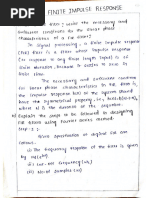 FINITE IMPULSE RESPONSE
write the necessary and
sufficient conditions for the linear phase
characteristics of a FIR filter?
In signal processing, a finite impulse response
(FIR) filter is a filter whose impulse response
(or response to any finite length input) is of
finite duration, because it settles to zero in
finite time.
The necessary and sufficient condition
for linear phase characteristics in the
impulse response h(n) of the system should
have the symmetrical property
where N is the duration of the sequence.
Explain the steps to be followed in designing
FIR filters using Fourier series method.
Step 1:
Some specification of digital FIR are
various.
the frequency response of the filter is given
by
Cut-off frequency
No of samples